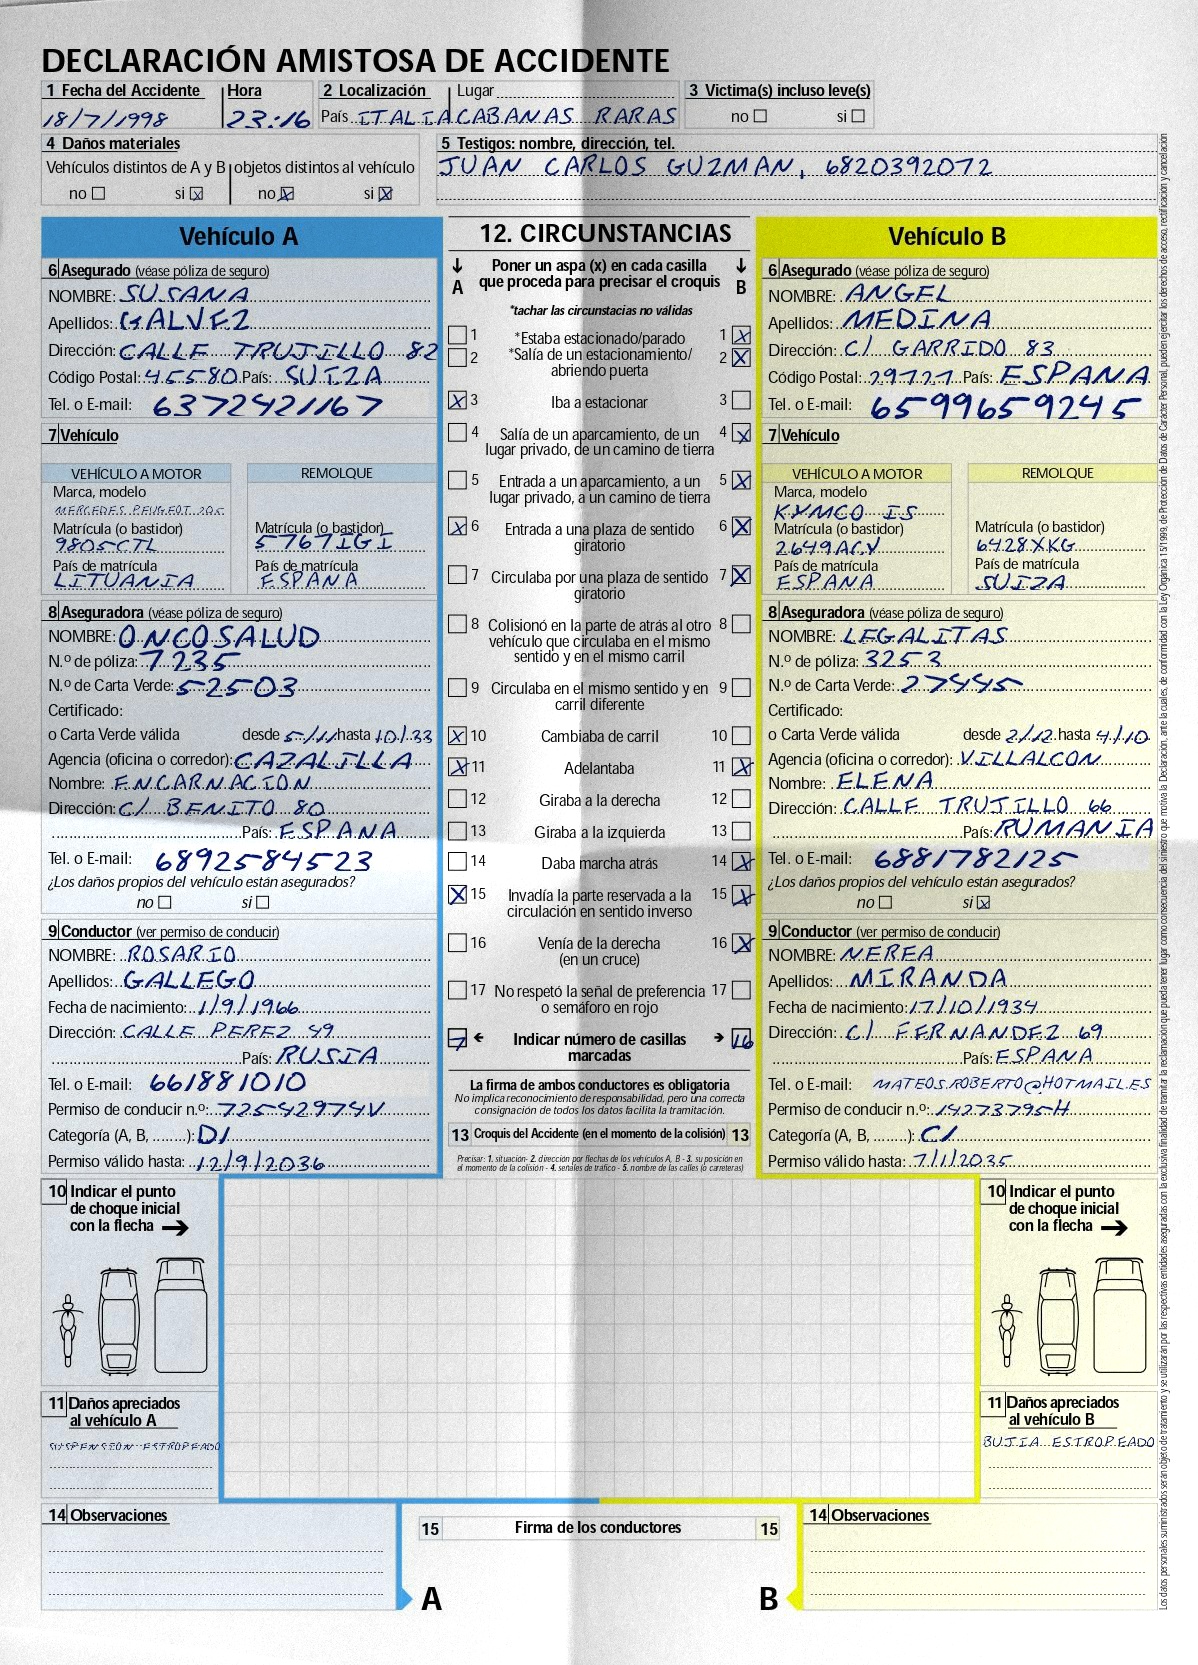 DECLARACIÓN AMISTOSA DE ACCIDENTE
1 Fecha del Accidente Hora 2 Localización Lugar 3 Victima(s) incluso leve(s)
18/7/1998 23:16 País ITALIA CABANAS RARAS no si
4 Daños materiales
Vehículos distintos de A y B objetos distintos al vehículo
no si X no X si X
5 Testigos: nombre, dirección, tel.
JUAN CARLOS GUZMAN, 6820392072
Vehículo A
6 Asegurado (véase póliza de seguro)
NOMBRE: SUSANA
Apellidos: GALVEZ
Dirección: CALLE TRUJILLO 82
Código Postal: 45580 País: SUIZA
Tel. o E-mail: 6372421167
7 Vehículo
VEHÍCULO A MOTOR REMOLQUE
Marca, modelo
MERCEDES PEUGEOT 205
Matrícula (o bastidor) Matrícula (o bastidor)
9805CTL 5767IGI
País de matrícula País de matrícula
LITUANIA ESPANA
8 Aseguradora (véase póliza de seguro)
NOMBRE: ONCOSALUD
N.º de póliza: 7235
N.º de Carta Verde: 52503
Certificado:
o Carta Verde válida desde 5/11 hasta 10/33
Agencia (oficina o corredor): CAZALILLA
Nombre: ENCARNACION
Dirección: C/ BENITO 80
País: ESPANA
Tel. o E-mail: 6892584523
¿Los daños propios del vehículo están asegurados?
no si
9 Conductor (ver permiso de conducir)
NOMBRE: ROSARIO
Apellidos: GALLEGO
Fecha de nacimiento: 1/9/1966
Dirección: CALLE PEREZ 49
País: RUSIA
Tel. o E-mail: 661881010
Permiso de conducir n.º: 72542974V
Categoría (A, B, ........): D1
Permiso válido hasta: 12/9/2036
12. CIRCUNSTANCIAS
A Poner un aspa (x) en cada casilla que proceda para precisar el croquis B
*tachar las circunstacias no válidas
1 *Estaba estacionado/parado 1 X
2 *Salía de un estacionamiento/ 2 X
abriendo puerta
X 3 Iba a estacionar 3
4 Salía de un aparcamiento, de un 4 X
lugar privado, de un camino de tierra
5 Entrada a un aparcamiento, a un 5 X
lugar privado, a un camino de tierra
X 6 Entrada a una plaza de sentido 6 X
giratorio
7 Circulaba por una plaza de sentido 7 X
giratorio
8 Colisionó en la parte de atrás al otro 8
vehículo que circulaba en el mismo
sentido y en el mismo carril
9 Circulaba en el mismo sentido y en 9
carril diferente
X 10 Cambiaba de carril 10
X 11 Adelantaba 11 X
12 Giraba a la derecha 12
13 Giraba a la izquierda 13
14 Daba marcha atrás 14 X
X 15 Invadía la parte reservada a la 15 X
circulación en sentido inverso
16 Venía de la derecha 16 X
(en un cruce)
17 No respetó la señal de preferencia 17
o semáforo en rojo
7 Indicar número de casillas 16
marcadas
La firma de ambos conductores es obligatoria
No implica reconocimiento de responsabilidad, pero una correcta
consignación de todos los datos facilita la tramitación.
13 Croquis del Accidente (en el momento de la colisión) 13
Precisar: 1. situación- 2. dirección por flechas de los vehículos A, B - 3. su posición en
el momento de la colisión - 4. señales de tráfico - 5. nombre de las calles (o carreteras)
Vehículo B
6 Asegurado (véase póliza de seguro)
NOMBRE: ANGEL
Apellidos: MEDINA
Dirección: C/ GARRIDO 83
Código Postal: 29727 País: ESPANA
Tel. o E-mail: 6599659245
7 Vehículo
VEHÍCULO A MOTOR REMOLQUE
Marca, modelo
KYMCO IS
Matrícula (o bastidor) Matrícula (o bastidor)
2649ACV 6428XKG
País de matrícula País de matrícula
ESPANA SUIZA
8 Aseguradora (véase póliza de seguro)
NOMBRE: LEGALITAS
N.º de póliza: 3253
N.º de Carta Verde: 27445
Certificado:
o Carta Verde válida desde 2/12 hasta 4/10
Agencia (oficina o corredor): VILLALCON
Nombre: ELENA
Dirección: CALLE TRUJILLO 66
País: RUMANIA
Tel. o E-mail: 6881782125
¿Los daños propios del vehículo están asegurados?
no si X
9 Conductor (ver permiso de conducir)
NOMBRE: NEREA
Apellidos: MIRANDA
Fecha de nacimiento: 17/10/1934
Dirección: C/ FERNANDEZ 69
País: ESPANA
Tel. o E-mail: MATEOS.ROBERTO@HOTMAIL.ES
Permiso de conducir n.º: 14273795H
Categoría (A, B, ........): C1
Permiso válido hasta: 7/1/2035
10 Indicar el punto
de choque inicial
con la flecha
11 Daños apreciados
al vehículo A
SUSPENSION ESTROPEADO
10 Indicar el punto
de choque inicial
con la flecha
11 Daños apreciados
al vehículo B
BUJIA ESTROPEADO
14 Observaciones
15 Firma de los conductores 15
A B
14 Observaciones
Los datos personales suministrados seran objeto de tratamiento y se utilizaran por las respectivas entidades aseguradas con la exclusiva finalidad de tramitar la reclamación que pueda tener lugar como consecuencia del siniestro que motiva la Declaración, ante la cuales, de conformidad con la Ley Organica 15/1999, de Protección de Datos de Carácter Personal, pueden ejercitar los derechos de acceso, rectificación y cancelación